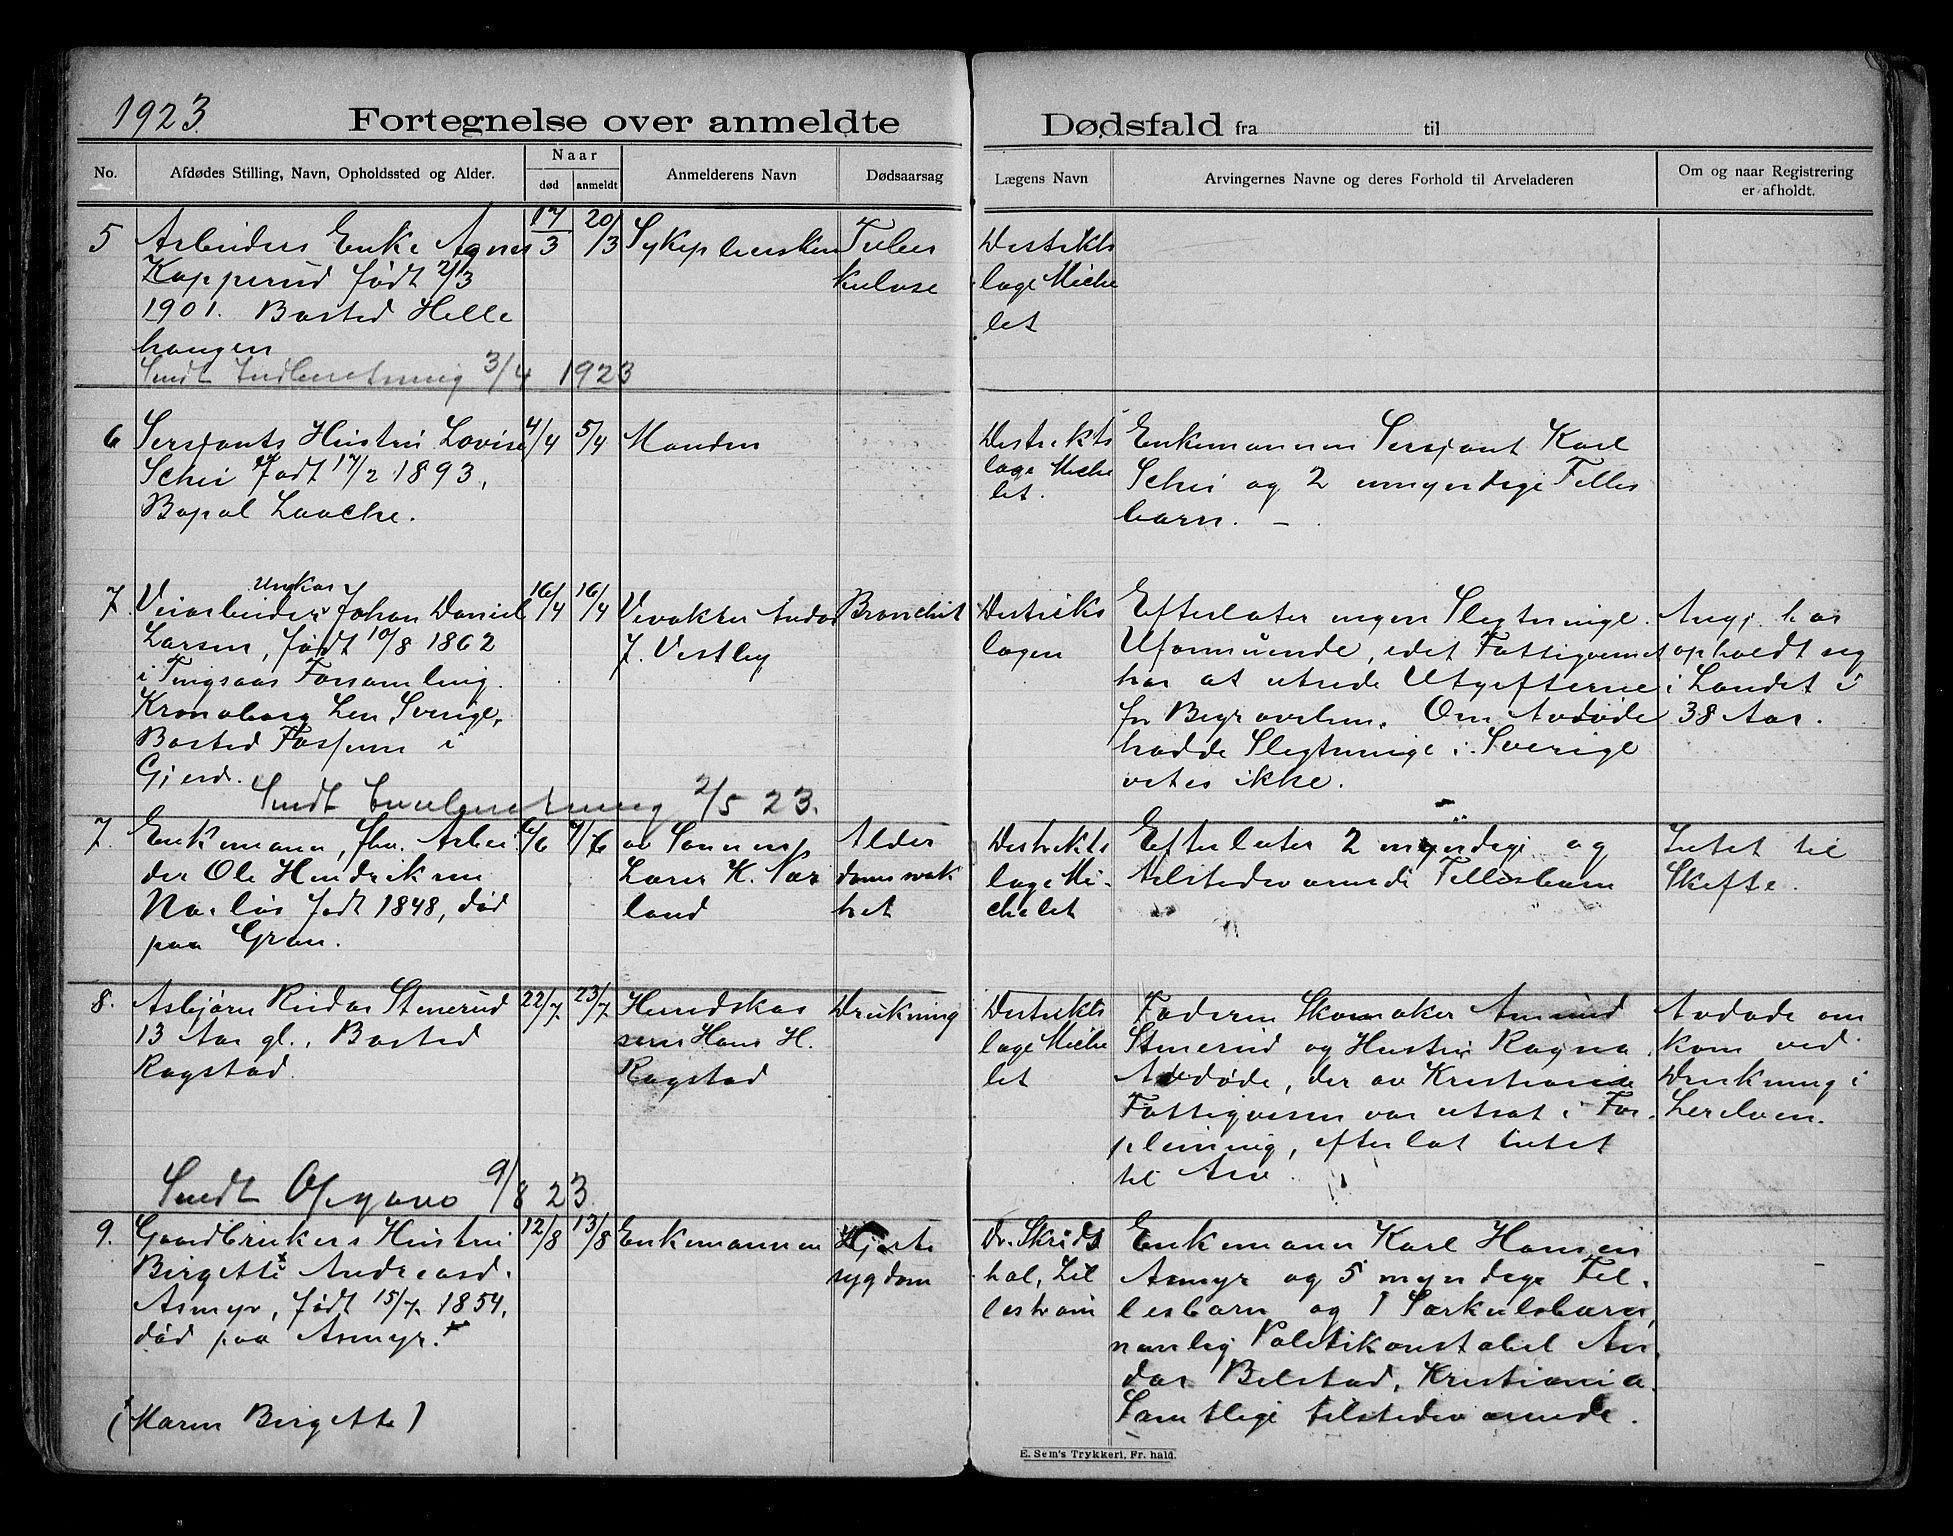 1923
Fortegnelse over anmeldte Dødsfald fra til
No.
Afdødes Stilling, Navn, Opholdssted og Alder.
Naar
død
anmeldt
Anmelderens Navn
Dødsaarsag
Lægens Navn
Arvingernes Navne og deres Forhold til Arveladeren
Om og naar Registrering
er afholdt.
5
Arbeiders Enke Agnes
Kopperud født 2/3
1901. Bosted Helle
haugen
Sendt Indberetning 3/4 1923
17/3
20/3
Sykepleiersken
Tuber
kulose
Distrikts
læge Miche
let
6
Sersjants Hustru Lovise
Schei født 17/2 1893,
Bopæl Laache.
4/4
5/4
Manden
Distrikts
læge Miche
let.
Enkemannen Sersjant Karl
Schei og 2 umyndige Felles
barn. -
7.
Ungkar
Veiarbeider Johan Daniel
Larsen, født 10/8 1862
i Tingsaas Forsamling.
Kronoberg Len, Sverige,
Bosted Fossum i
Gjerd.
Sendt Innberetning 2/5 23.
16/4
16/4
Veivokter Andor
J. Vestby
Bronchit
Distrikts
lægen
Efterlater ingen Slegtninge.
Uformuende, idet Fattigvesnet
har at utrede Utgifterne
for Begravelsen. Om Avdøde
hadde Slegtninge i Sverige
vites ikke.
Angj. har
opholdt sig
i Landet i
38 Aar.
7.
Enkemann, fhv. Arbei
der Ole Hendriksen
født 1848, død
paa Gran.
6/6
7/6
av Sønnen
Larer K. Nor
land
Alder
domsvak
het
Distrikts
læge Mi-
chelet
Efterlater 2 myndige og
tilstedeværende Fellesbarn
Intet til
Skifte.
8.
Asbjørn Reidar Stenerud
13 Aar gl., Bosted
Ragstad.
Sendt Opgave 9/8 23
22/7
23/7
Herredskas
serer Hans H.
Ragstad
Drukning
Distrikts
læge Miche
let
Faderen Skomaker Amund
Stenerud og Hustru Ragna.
Avdøde, der av Kristiania
Fattigvesen var utsat i For-
pleining, efterlot intet
til Arv.
Avdøde om
kom ved
Drukning i
Lerelven.
9.
Gaardbrukers Hustru
Birgette x Andreasd.
Asmyr, født 15/7 1854,
død paa Asmyr. x
(Maren Birgette)
12/8
13/8
Enkemannen
Hjerte
sygdom
Dr. Skråds
hol, Lil
lestrøm
Enkemann Karl Hansen
Asmyr og 5 myndige Fel-
lesbarn og 1 Særkulsbarn,
nemlig Politikonstabel An-
dor Belstad, Kristiania.
Samtlige tilstedeværende.
E. Sem's Trykkeri, Fr. hald.